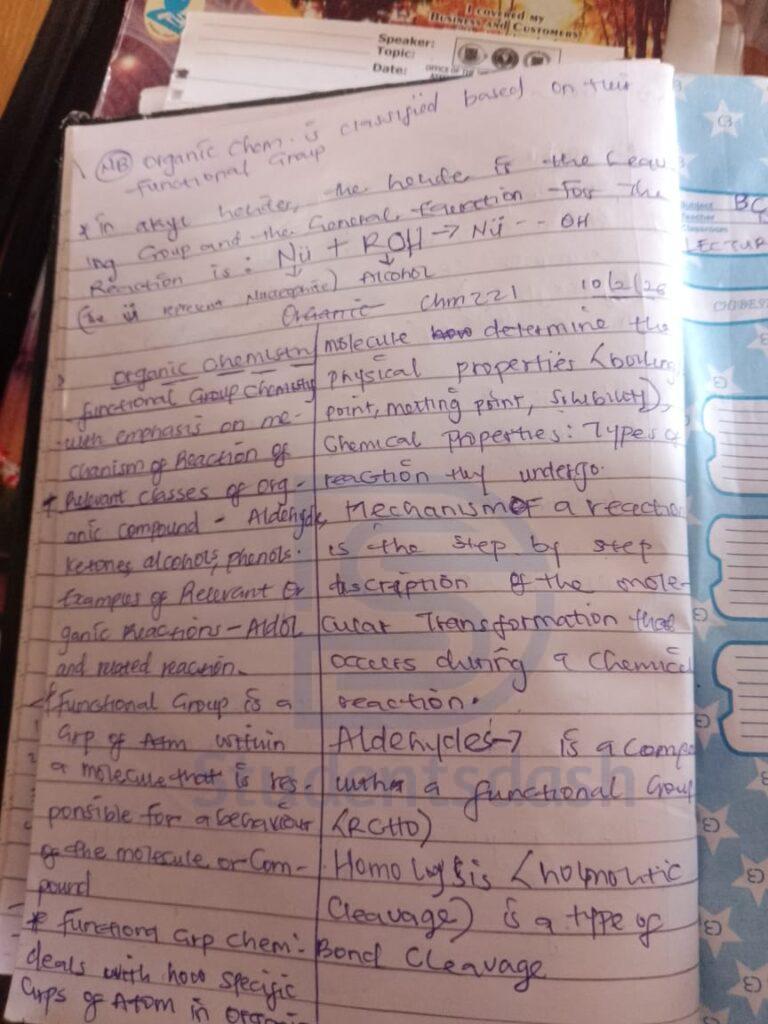 I COVERED MY
BUSINESS AND CUSTOMERS!
Speaker:
Topic:
Date:
OFFICE OF THE
NB organic chem. is classified based on their
functional Group
* in akyl halide, the halide is the Leav
ing Group and the General function for the
Reaction is: Nü + ROH → Nü -- OH
(the ü represent Nucleophile) Alcohol
Organic Chm 221 10/2/26
organic chemistry
functional Group Chemistry
with emphasis on me-
chanism of Reaction of
* Relevant classes of org-
anic compound - Aldehyde,
Ketones, alcohols, phenols.
Examples of Relevant Or
ganic Reactions - Aldol
and related reaction.
* functional Group is a
Grp of Atm within
a molecule that is res-
ponsible for a behaviour
of the molecule or Com-
pound
* functiona Grp chem:
deals with how specific
Grps of Atom in organi
molecule determine the
physical properties (boiling
point, melting point, Solubility),
Chemical properties: Types of
reaction they undergo.
Mechanism of a reactio
is the step by step
discription of the mole-
cular Transformation that
occurs during a Chemical
reaction.
Aldehydes → is a compo
with a functional Group
(RCHO)
Homolysis (holmolitic
Cleavage) is a type of
Bond Cleavage
Subject
Teacher
Classroom
BC
LECTUR
Studentsdash